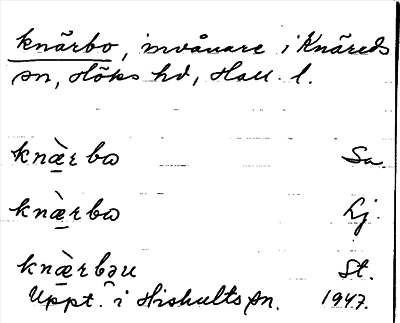 knärbo, invånare i Knäreds
sn, Höks hd, Hall. l.
knæ̀rbɷ Sa.
knæ̀rbɷ Lj.
knæ̀rbəu St.
Uppt. i Hishults sn. 1947.